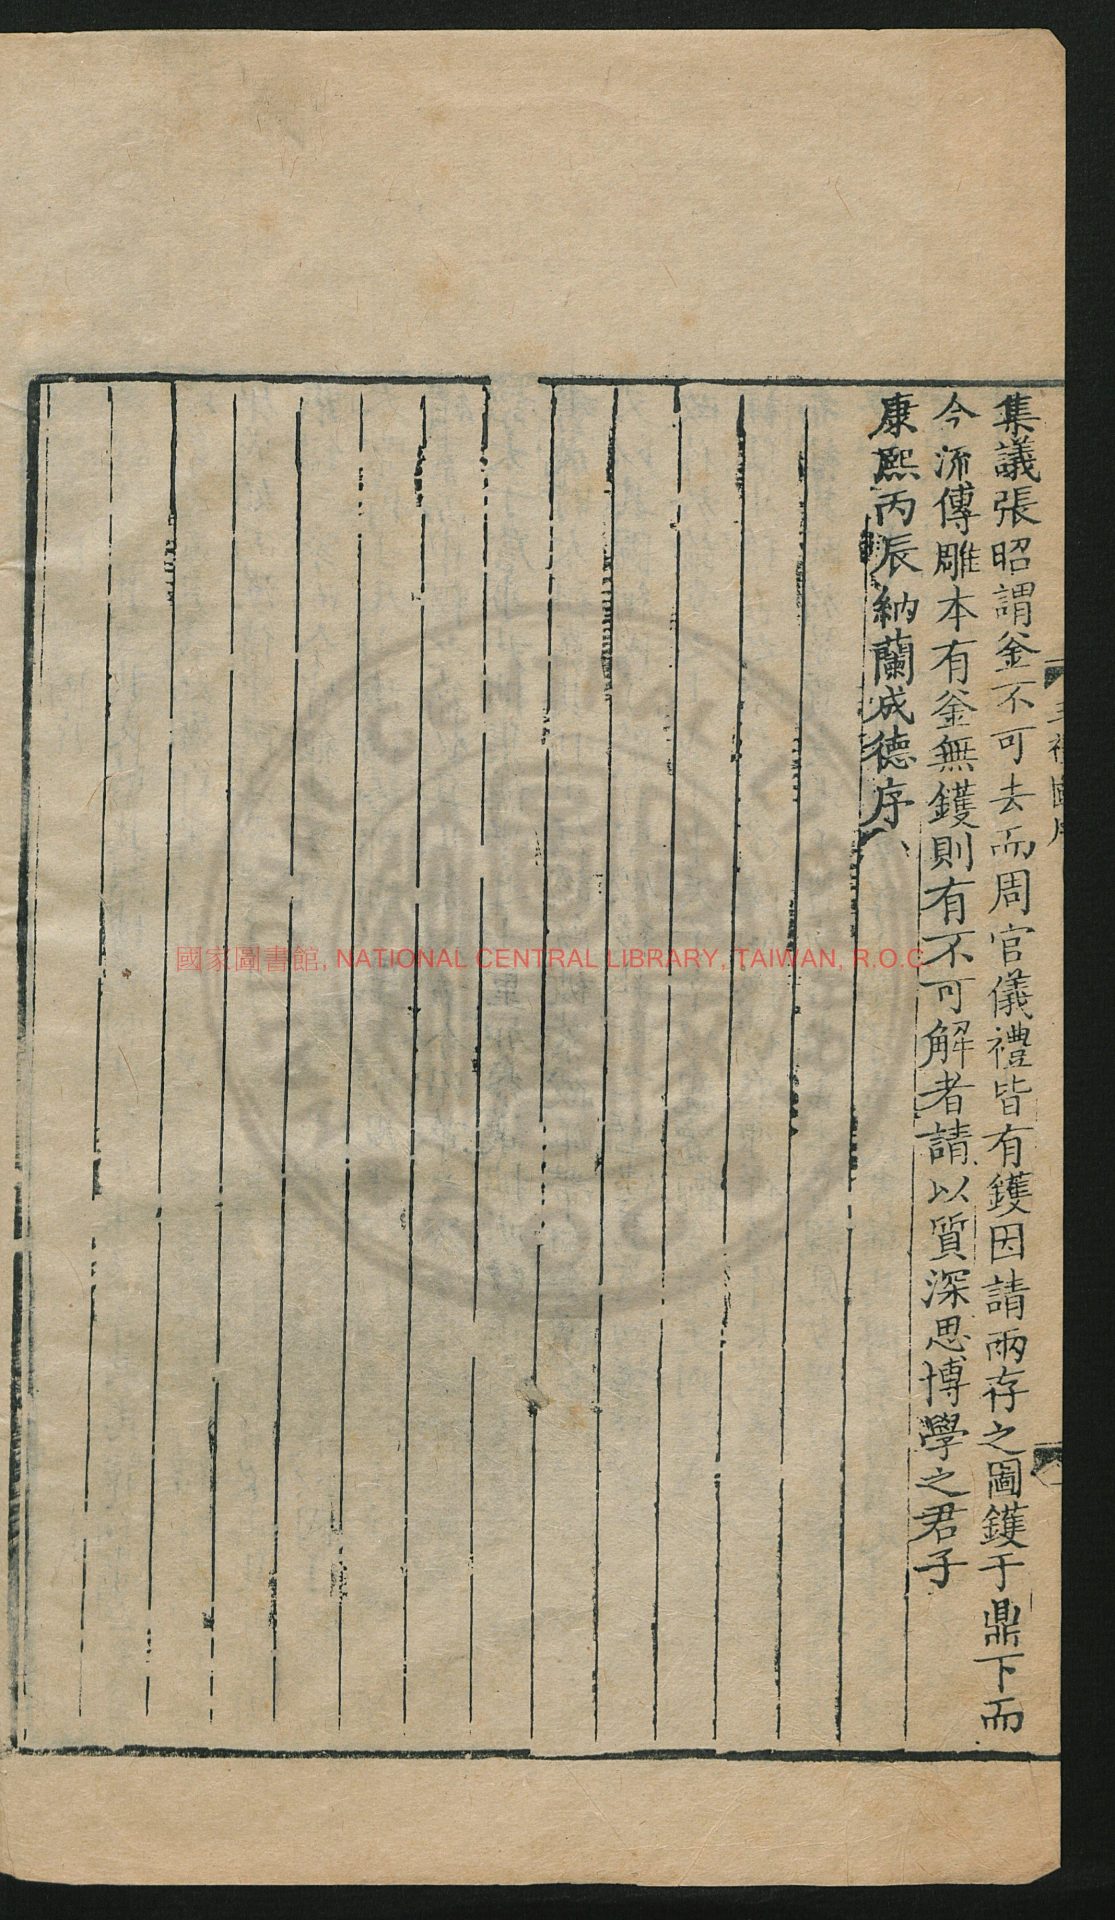 集議張昭謂釜不可去而周官儀禮皆有鑊因請兩存之圖鑊于鼎下而
今流傳雕本有釜無鑊則有不可解者請以質深思博學之君子
康熙丙辰納蘭成德序
國家圖書館, NATIONAL CENTRAL LIBRARY, TAIWAN, R.O.C.